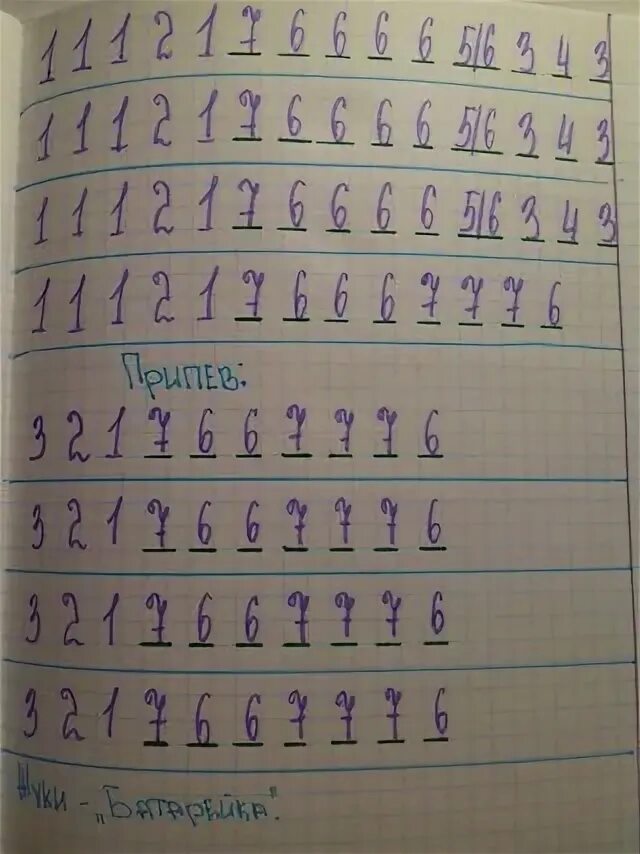 1 1 1 2 1 7 6 6 6 6 5/6 3 4 3
1 1 1 2 1 7 6 6 6 6 5/6 3 4 3
1 1 1 2 1 7 6 6 6 6 5/6 3 4 3
1 1 1 2 1 7 6 6 6 7 7 7 6
Припев:
3 2 1 7 6 6 7 7 7 6
3 2 1 7 6 6 7 7 7 6
3 2 1 7 6 6 7 7 7 6
3 2 1 7 6 6 7 7 7 6
Жуки - „Батарейка".